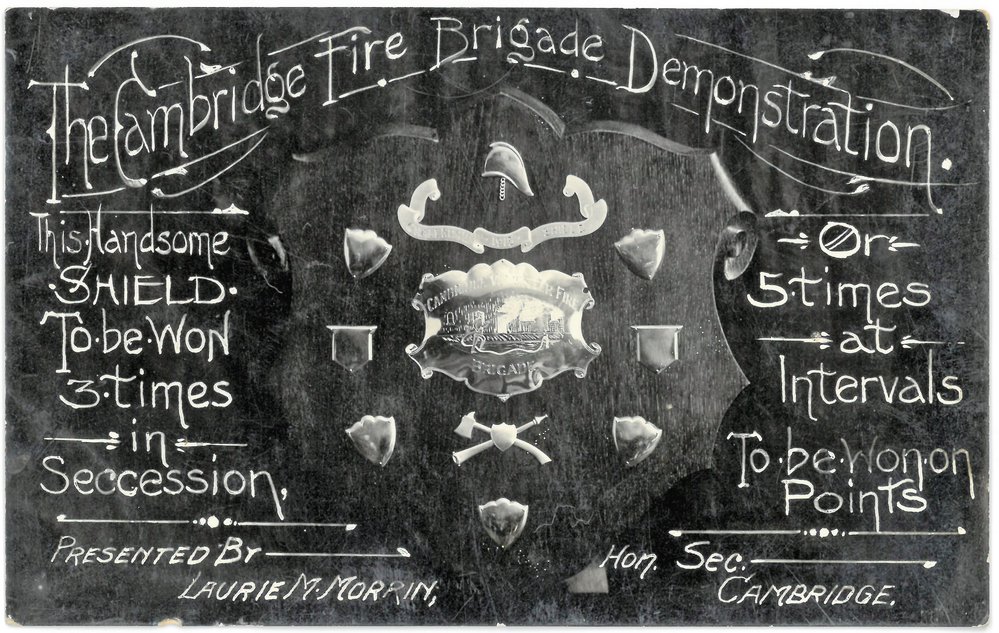 The Cambridge Fire Brigade Demonstration.
This Handsome
SHIELD.
To be WON
3 times
in
Seccession,
PRESENTED BY
LAURIE M. MORRIN,
FIRE
CAMBRIDGE FIRE
BRIGADE
Or
5 times
at
Intervals
To be Won on
Points
Hon. Sec.
CAMBRIDGE.